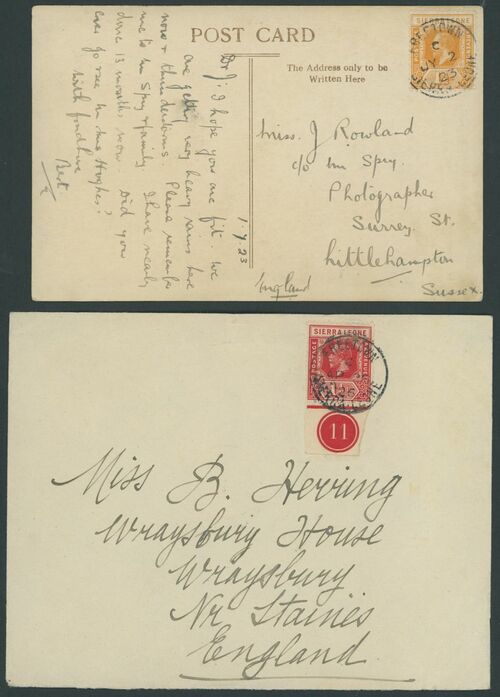 POST CARD
The Address only to be
Written Here
SIERRA LEONE
FREETOWN
C
JY 2
23
SIERRA LEONE
1.7.23
Dr J: I hope you are fit. We
are getting very heavy rains here
now & thunderstorms. Please remember
me to Mr Spry & family. I have nearly
done 13 months now. Did you
ever go & see Mrs Hughes?
With fond love
Bert
Miss. J Rowland
c/o Mr Spry.
Photographer
Surrey St.
Littlehampton
Sussex.
England
SIERRA LEONE
POSTAGE
REVENUE
FREETOWN
25
SIERRA LEONE
11
Miss B. Herring
Wraysbury House
Wraysbury
Nr Staines
England